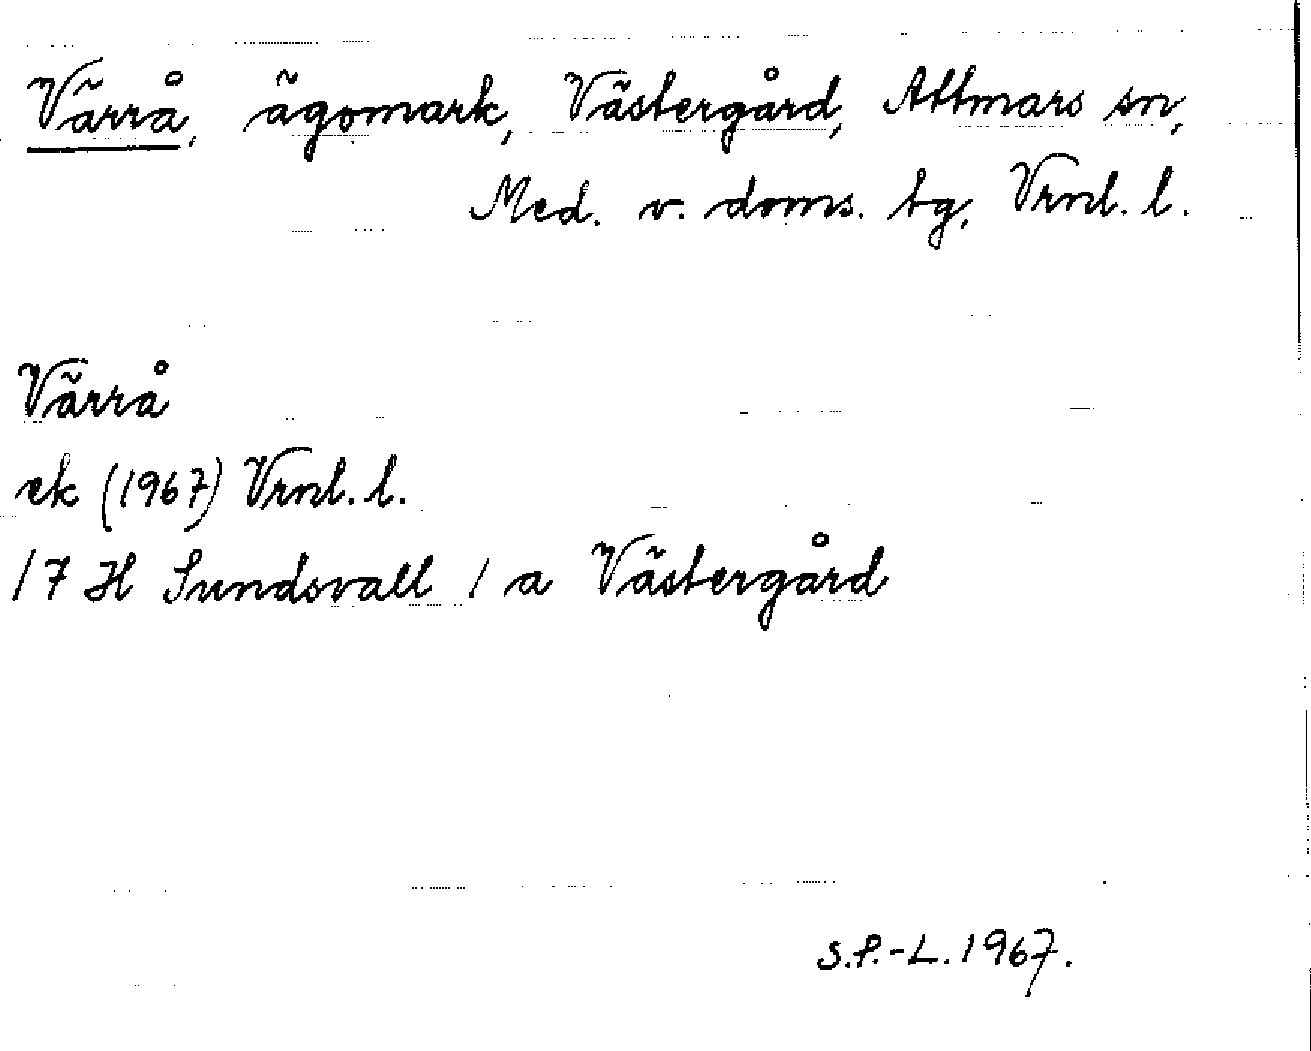 Värrå, ägomark, Västergård, Attmars sn,
Med. v. doms. tg, Vrnl. l.
Värrå
ek (1967) Vrnl. l.
17 H Sundsvall 1 a Västergård
S.P.-L. 1967.